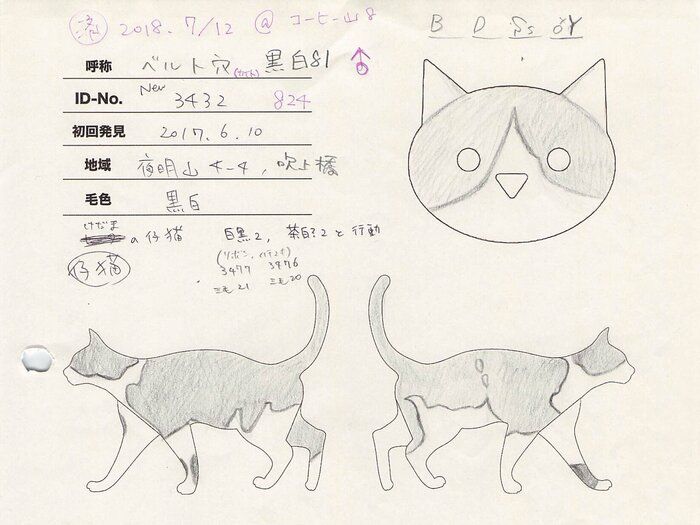 済 2018. 7/12 @ コーヒー山8
B D Ss ♂Y
呼称 ベルト穴 黒白81
ID-No. New 3432 824
初回発見 2017. 6. 10
地域 夜明山4-4, 吹上橋
毛色 黒白
けだま
の仔猫 白黒2, 茶白?2と行動
仔猫
3477 3476
三毛21 三毛20